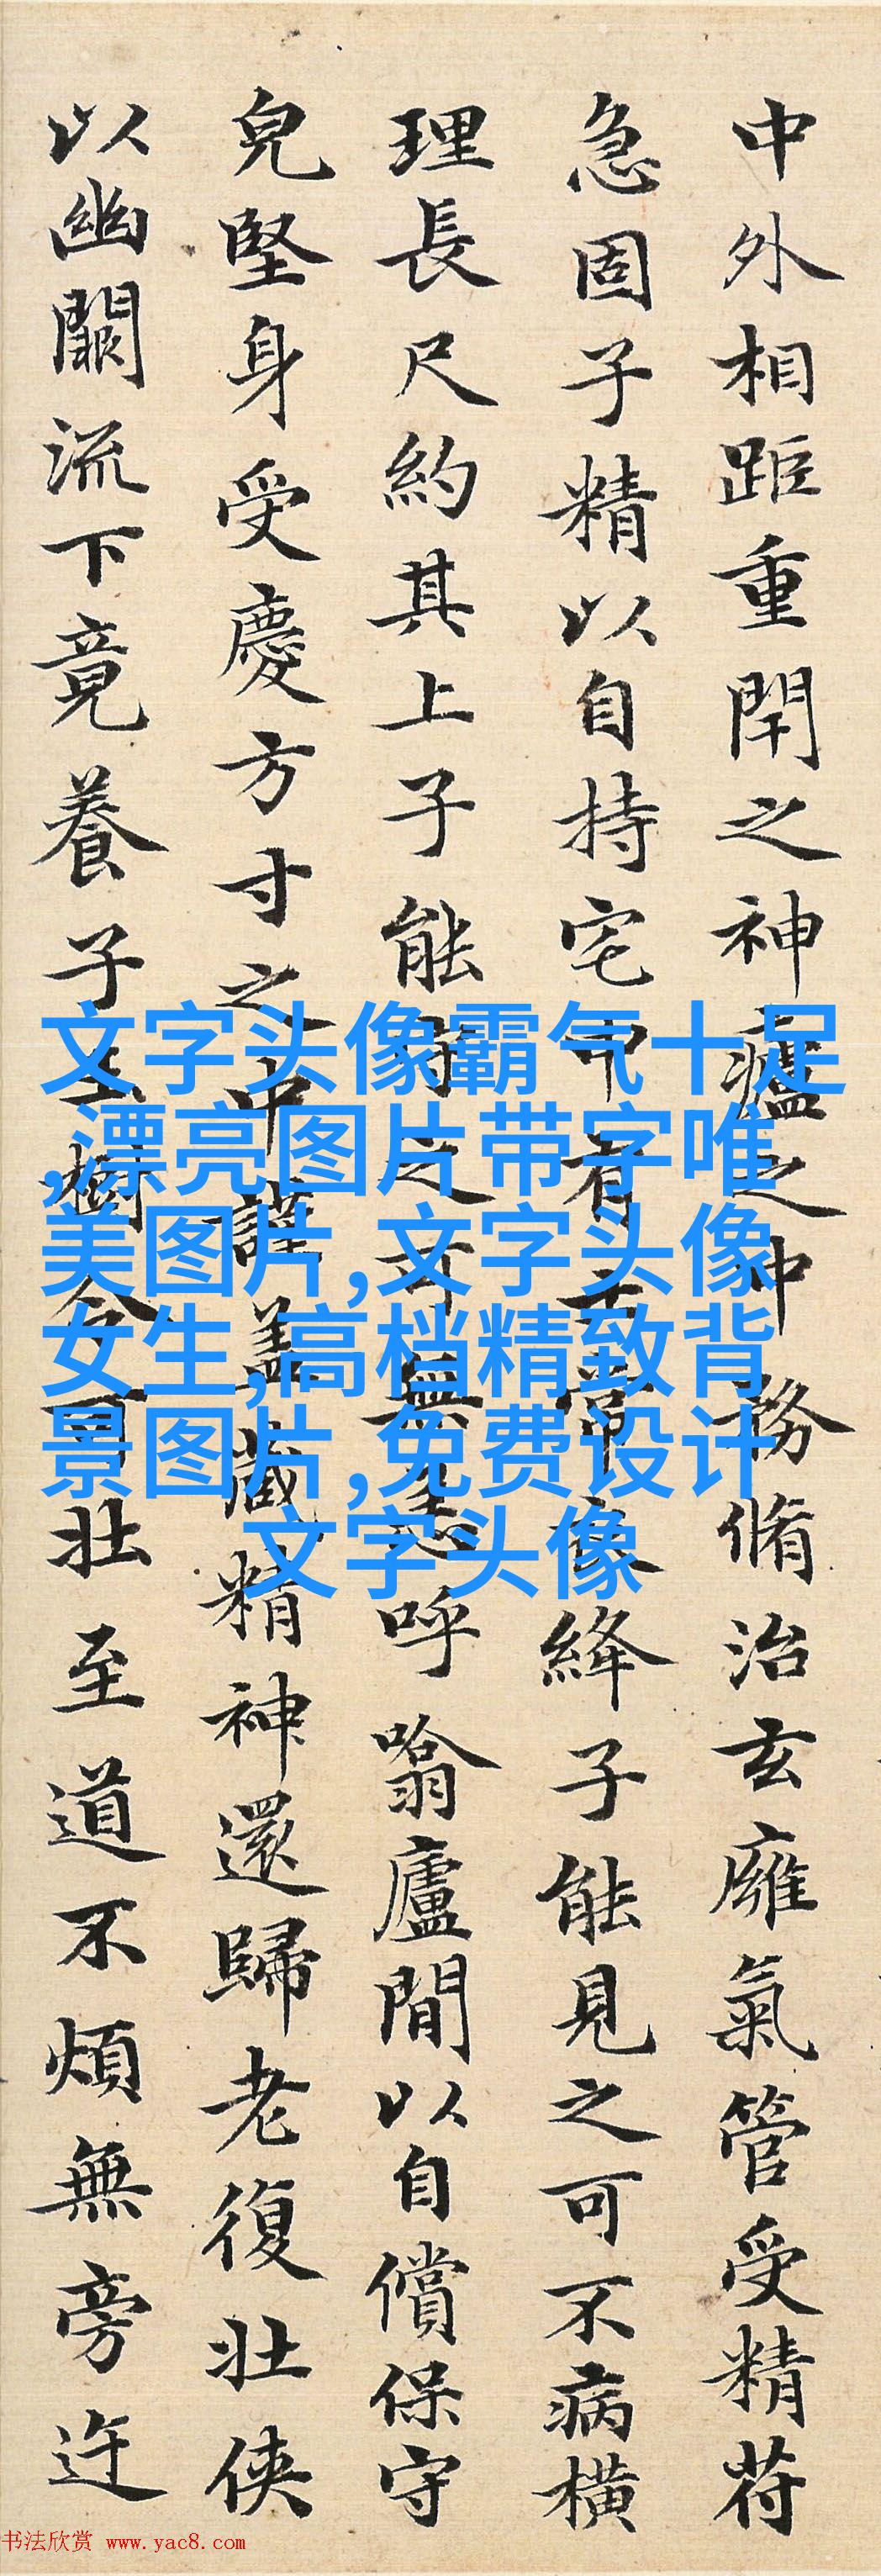 中外相距重閇之神廬之中務脩治玄廱氣管受精荷
急固子精以自持宅中有士常衣絳子能見之可不病橫
理長尺約其上子能守之可無恙呼噏廬閒以自償保守
皃堅身受慶方寸之中謹蓋藏精神還歸老復壯俠
以幽闕流下竟養子玉樹令可壯至道不煩無旁迕
文字头像霸气十足
,漂亮图片带字唯
美图片,文字头像
女生,高档精致背
景图片,免费设计
文字头像
书法欣赏 www.yac8.com